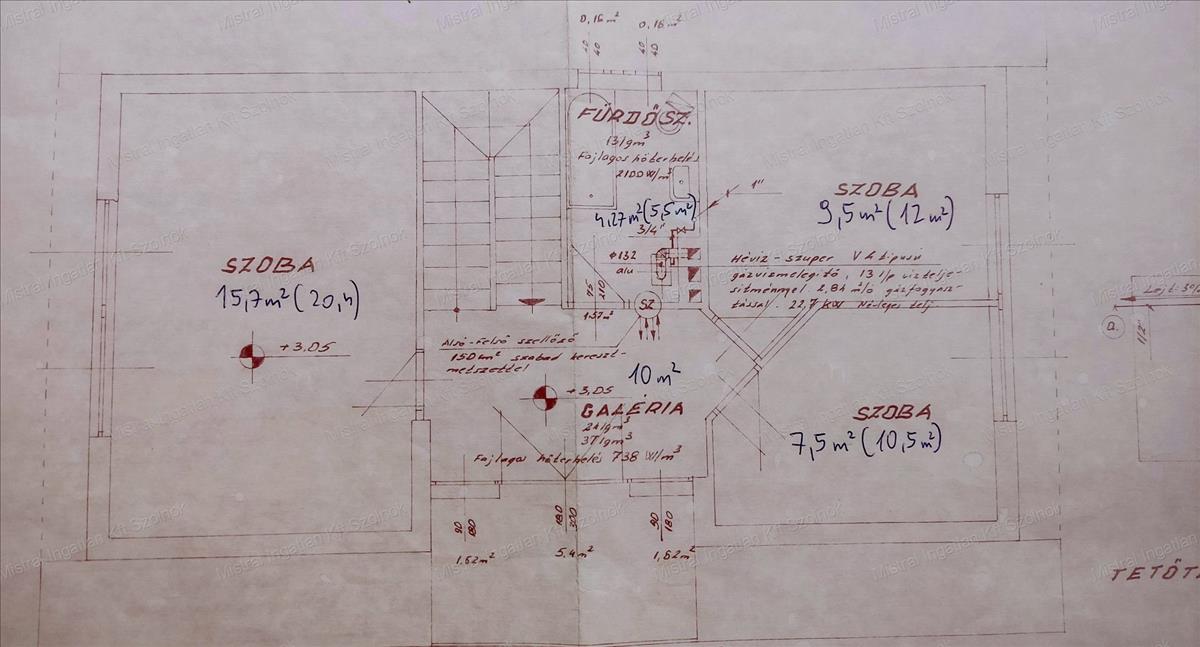 0,16 m² 0,16 m²
40 40
40 40
FÜRDŐSZ.
13 lgm³
Fajlagos hőterhelés
2100 W/m³
4,27m² (5,5m²)
3/4"
1"
φ132
alu
75
210
1.57m²
SZ
SZOBA
9,5m² (12m²)
Hévíz-szuper V4 tipusú
gázvizmelegitő, 13 l/p viztelje-
sitménnyel. 2,8
tással. 22,7 KW Névleges telj
SZOBA
15,7m² (20,4)
+3,05
Alsó-felső szellőző
150cm² szabad kereszt-
metszettel
10 m²
+3,05
GALÉRIA
24 lgm³
37 lgm³
Fajlagos hőterhelés 738 W/m³
SZOBA
7,5m² (10,5m²)
90
180
1.62m²
180
300
5.4m²
90
180
1,62m²
112"
TETŐT
Mistral Ingatlan Kft Szolnok